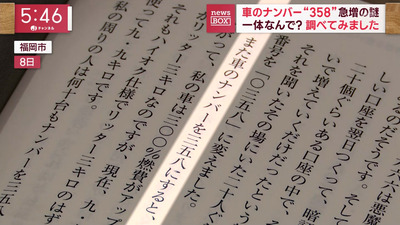 5:46
福岡市
8日
news
BOX
車のナンバー“358”急増の謎
一体なんで?調べてみました
六八は悪魔
しい口座を翌日つくって、そして、
二十個ぐらいある口座の中で、そ
いで増えていくだけ
暗
それを聞いてその場にいた二十人ぐ
番号を「〇三五八」に変えました。
また車のナンバーを三五八にすると、
がって、私の車は三〇〇%燃費がアップ
リッター三キロなのですが、現在、九・
それもハイオク仕様でリッター三キロのはず
って九・九キロです。
私の周りの人は何十台もナンバーを三五